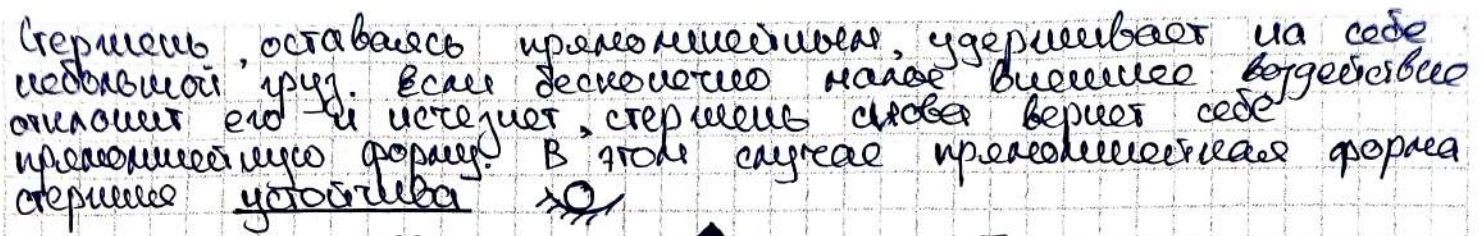 Стержень, оставаясь прямолинейным, удерживает на себе
небольшой груз. Если бесконечно малое внешнее воздействие
отклонит его и исчезнет, стержень снова вернет себе
прямолинейную форму. В этом случае прямолинейная форма
стержня устойчива